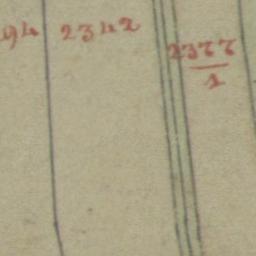 94 2342
2377
1